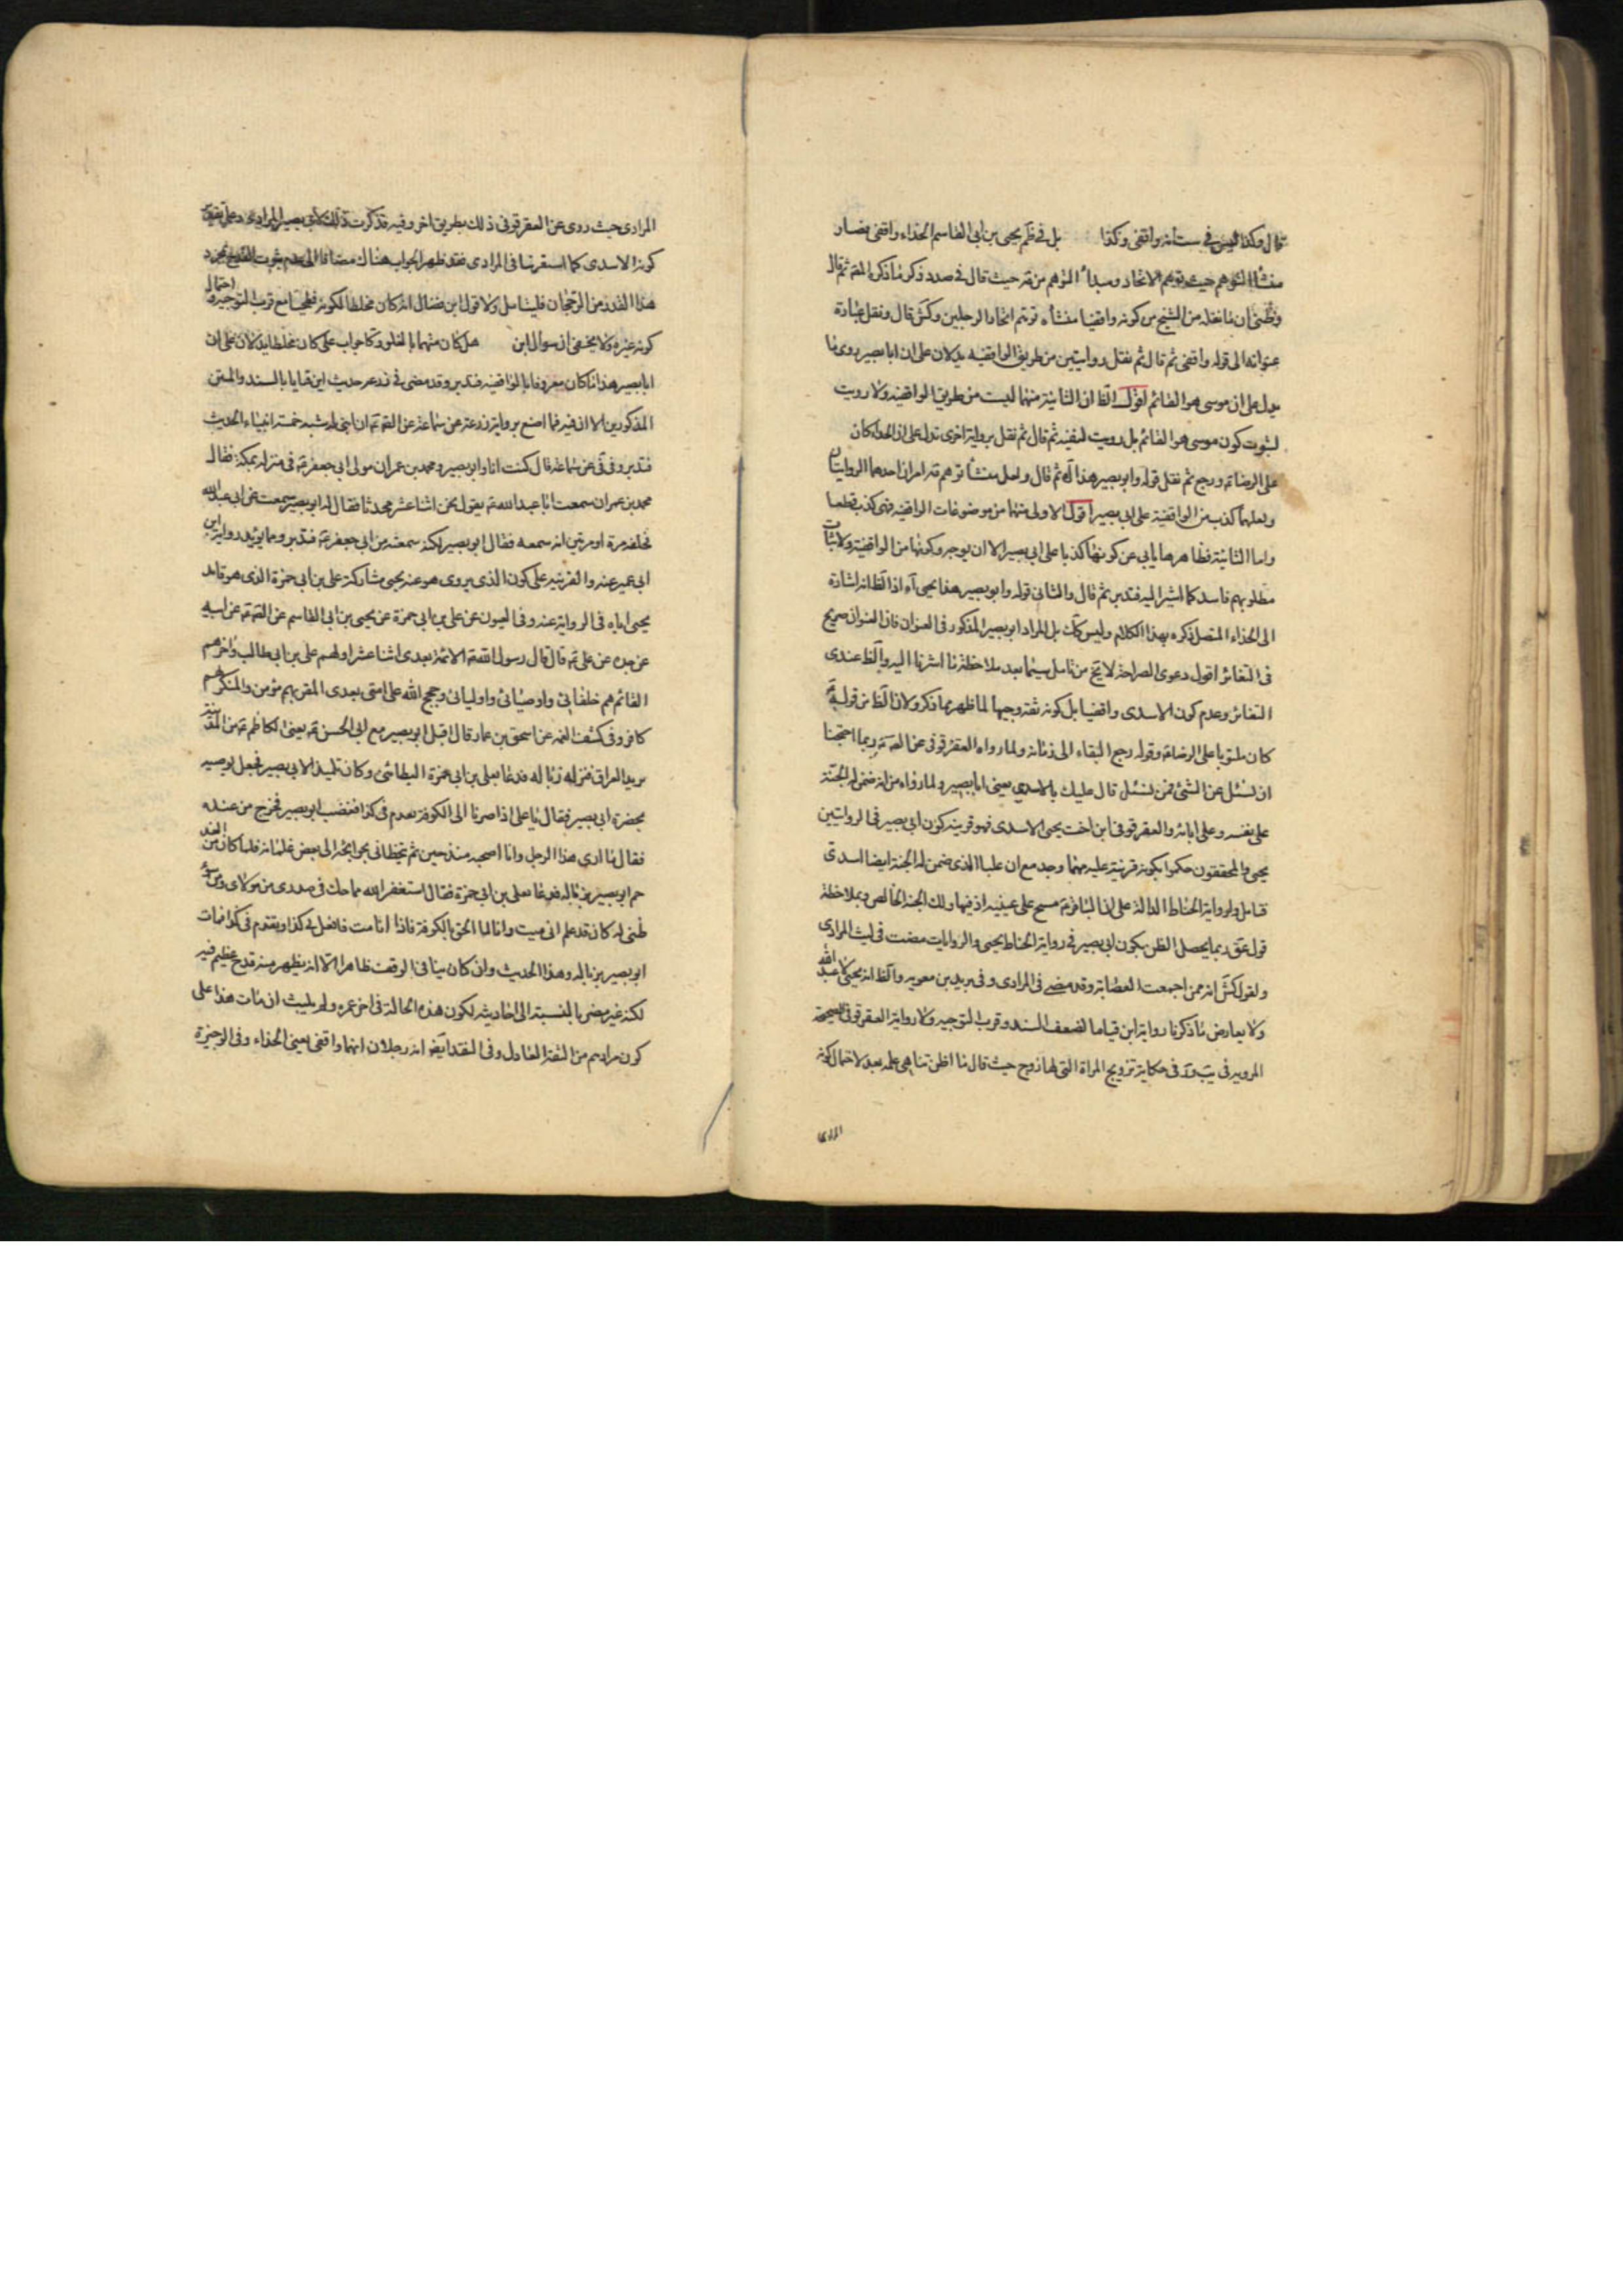 قال وكذا ليس في ست انه واقفى وكذا بل في ظم يحيى بن ابى القاسم الحذاء واقفى فصار
منشأ التوهم حيث توهم الاتحاد ومبدأ التوهم من قه حيث قال في صدد ذكر ما ذكره المقه ثم قال
وظنى ان ما نقله من الشيخ من كونه واقفيا منشأه توهم اتحاد الرجلين وكش قال ونقل عبارة
عنوانه الى قوله واقفى ثم قال ثم نقل روايتين من طريق الواقفيه يدلان على ان ابا بصير روى ما
يدل على ان موسى هو القائم اقول الظ ان الثانية منهما ليست من طريق الواقفيه ولا رويت
لثبوت كون موسى هو القائم بل رويت لنفيه ثم قال ثم نقل برواية اخرى تدل على ان الحذاء كان
على الرضا ع ورجع ثم نقل قوله وابو بصير هذا آه ثم قال ولعل منشأ توهم قه امران احدهما الروايتان
ولعلهما كذب من الواقفية على ابى بصير اقول الاولى منهما من موضوعات الواقفيه فهى كذب قطعا
واما الثانية فظاهرها يابى عن كونها كذبا على ابى بصير الا ان يوجه وكونها من الواقفية ولاثبات
مطلوبهم فاسد كما اشير اليه فتدبر ثم قال والثانى قوله وابو بصير هذا يحيى آه اذ الظ انه اشارة
الى الحذاء المتصل ذكره بهذا الكلام وليس كك بل المراد ابو بصير المذكور في العنوان فان العنوان صريح
في التغائر اقول دعوى الصراحة لا يخ من تامل سيما بعد ملاحظة ما اشرنا اليه والظ عندى
التغائر وعدم كون الاسدى واقفيا بل كونه ثقة وجيها لما ظهر مما ذكر ولان الظ من قوله
كان ملتويا على الرضا ع وقوله رجع البقاء الى زمانه ولما رواه العقرقوفى عن الصه ع ربما احتجنا
ان نسئل عن الشئ فمن نسئل قال عليك بالاسدى يعنى ابا بصير ولما رواه من انه ضمن له الجنة
على نفسه وعلى ابائه والعقرقوفى ابن اخت يحيى الاسدى فهو قرينه كون ابى بصير في الروايتين
يحيى والمحققون حكموا بكونه قرينة عليه مهما وجد مع ان علبا الذى ضمن له الجنة ايضا اسدى
فتامل ولرواية الحناط الدالة على ان الباقر ع مسح على عينيه اذ فيها ولك الجنة الخالص وبملاحظة
قول عق ربما يحصل الظن بكون ابى بصير في رواية الحناط يحيى والروايات مضت في ليث المرادى
ولقول كش انه ممن اجمعت العصابة وقد مضى في المرادى وفى بريد بن معويه والظ انه يحيى لا عبد الله
ولا يعارض ما ذكرنا رواية ابن قياما لضعف السند وقرب التوجيه ولا رواية العقرقوفى الصحيحة
المرويه في يب وا في حكاية تزويج المراة التى لها زوج حيث قال ما اظن تناهى علمه بعد لاحتمال كونه
المرادى
المرادى حيث روى عن العقرقوفى ذلك بطريق اخر وفيه قد ذكرت ذلك لابى بصير المرادى وعلى تقدير
كونه الاسدى كما استقربنا في المرادى فقد ظهر الجواب هناك مضافا الى عدم ثبوت القدح بمجرد
هذا القدر من الرجحان فليتامل ولا قول ابن فضال انه كان مخلطا لكونه فطحيا مع قرب التوجيه واحتمال
كونه غيره ولا يخفى ان سوال ابن هل كان متهما بالغلو وكا جواب على كان مخلطا يدلان على ان
ابا بصير هذا ما كان معروفا بالواقفيه فتدبر وقد مضى في زرعه حديث ابن قياما بالسند والمتن
المذكورين الا ان فيه فما اصنع برواية زرعة عن سماعة عن الصه ع ان ابنى له شبه خمسة انبياء الحديث
فتدبر وفى في عن سماعه قال كنت انا وابو بصير ومحمد بن عمران مولى ابى جعفر ع في منزله بمكة فقال
محمد بن عمران سمعت ابا عبد الله ع يقول نحن اثنا عشر محدثا فقال له ابو بصير سمعت من ابى عبد الله
فحلفه مرة او مرتين انه سمعه فقال ابو بصير لكنه سمعته من ابى جعفر ع فتدبر ومما يؤيد رواية ابن
ابى عمير عنه والقرينه على كون الذى يروى هو عنه يحيى مشاركة على بن ابى حمزة الذى هو قائد
يحيى اياه في الرواية عنه وفى العيون عن على بن ابى حمزة عن يحيى بن ابى القاسم عن الصه ع عن ابيه
عن جده عن على ع قال قال رسول الله ص الائمة بعدى اثنا عشر اولهم على بن ابى طالب واخرهم
القائم هم خلفائى واوصيائى واوليائى وحجج الله على امتى بعدى المقر بهم مؤمن والمنكر لهم
كافر وفى كشف الغمه عن اسحق بن عمار قال اقبل ابو بصير مع ابى الحسن ع يعنى الكاظم ع من المدينة
يريد العراق فنزل زباله فدعا بعلى بن ابى حمزة البطائنى وكان تلميذا لابى بصير فجعل يوصيه
بحضرة ابى بصير فقال يا على اذا صرنا الى الكوفة تقدم في كذا فغضب ابو بصير فخرج من عنده
فقال ما ارى هذا الرجل وانا اصحبه منذ حين ثم يتخطانى بحوائجه الى بعض غلمانه فلما كان من الغد
حم ابو بصير بزباله فدعا بعلى بن ابى حمزة فقال استغفر الله مما حك في صدرى من مولاى ومن سوء
ظنى له كان قد علم انى ميت وانا لا الحق بالكوفة فاذا انا مت فافعل بى كذا وتقدم في كذا فمات
ابو بصير بزباله وهذا الحديث وان كان ينافى الوقف ظاهرا الا انه يظهر منه قدح عظيم فيه
لكنه غير مضر بالنسبة الى احاديثه لكون هذه الحالة في اخر عمره ولم يلبث ان مات هذا على
كون مرادهم من الثقة العادل وفى النقد ايضا انه رجلان انهما واقفى يعنى الحذاء وفى الوجيزة